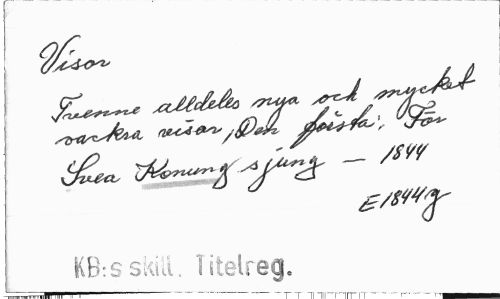 Visor
Tvenne alldeles nya och mycket
vackra visor, Den första: För
Svea Konung sjung — 1844
E1844:g
KB:s skill. Titelreg.